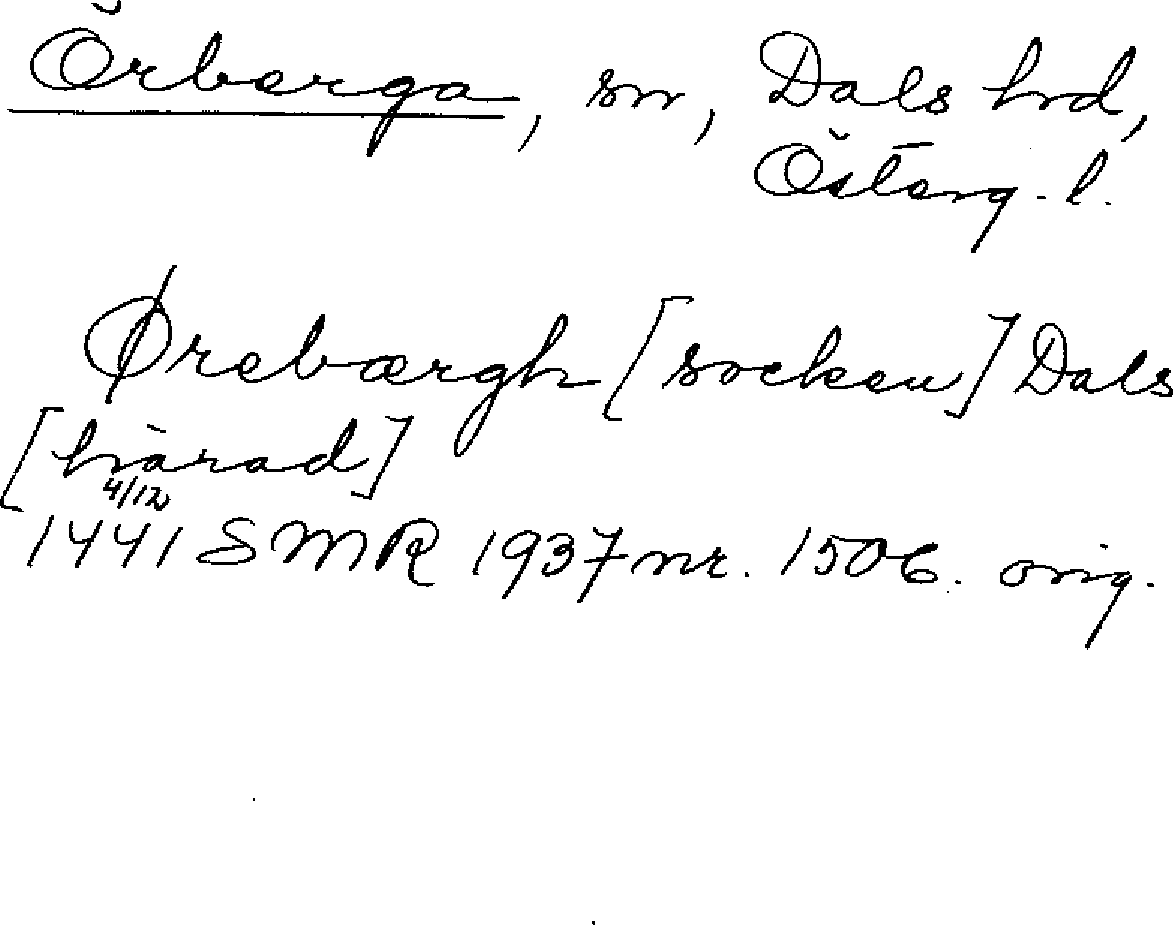 Örberga, sn, Dals hrd,
Österg. l.
Ørebærgh [socken] Dals
[härad]
4/12
1441 SMR 1937 nr. 1506. orig.